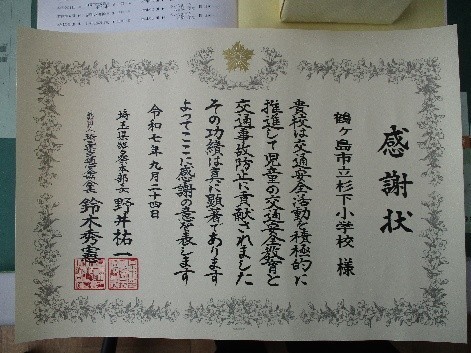 感謝状
鶴ヶ島市立杉下小学校 様
貴校は交通安全活動を積極的に
推進して児童の交通安全教育と
交通事故防止に貢献されました
その功績は真に顕著であります
よってここに感謝の意を表します
令和七年九月二十四日
埼玉県警察本部長 野井祐一
鈴木秀憲